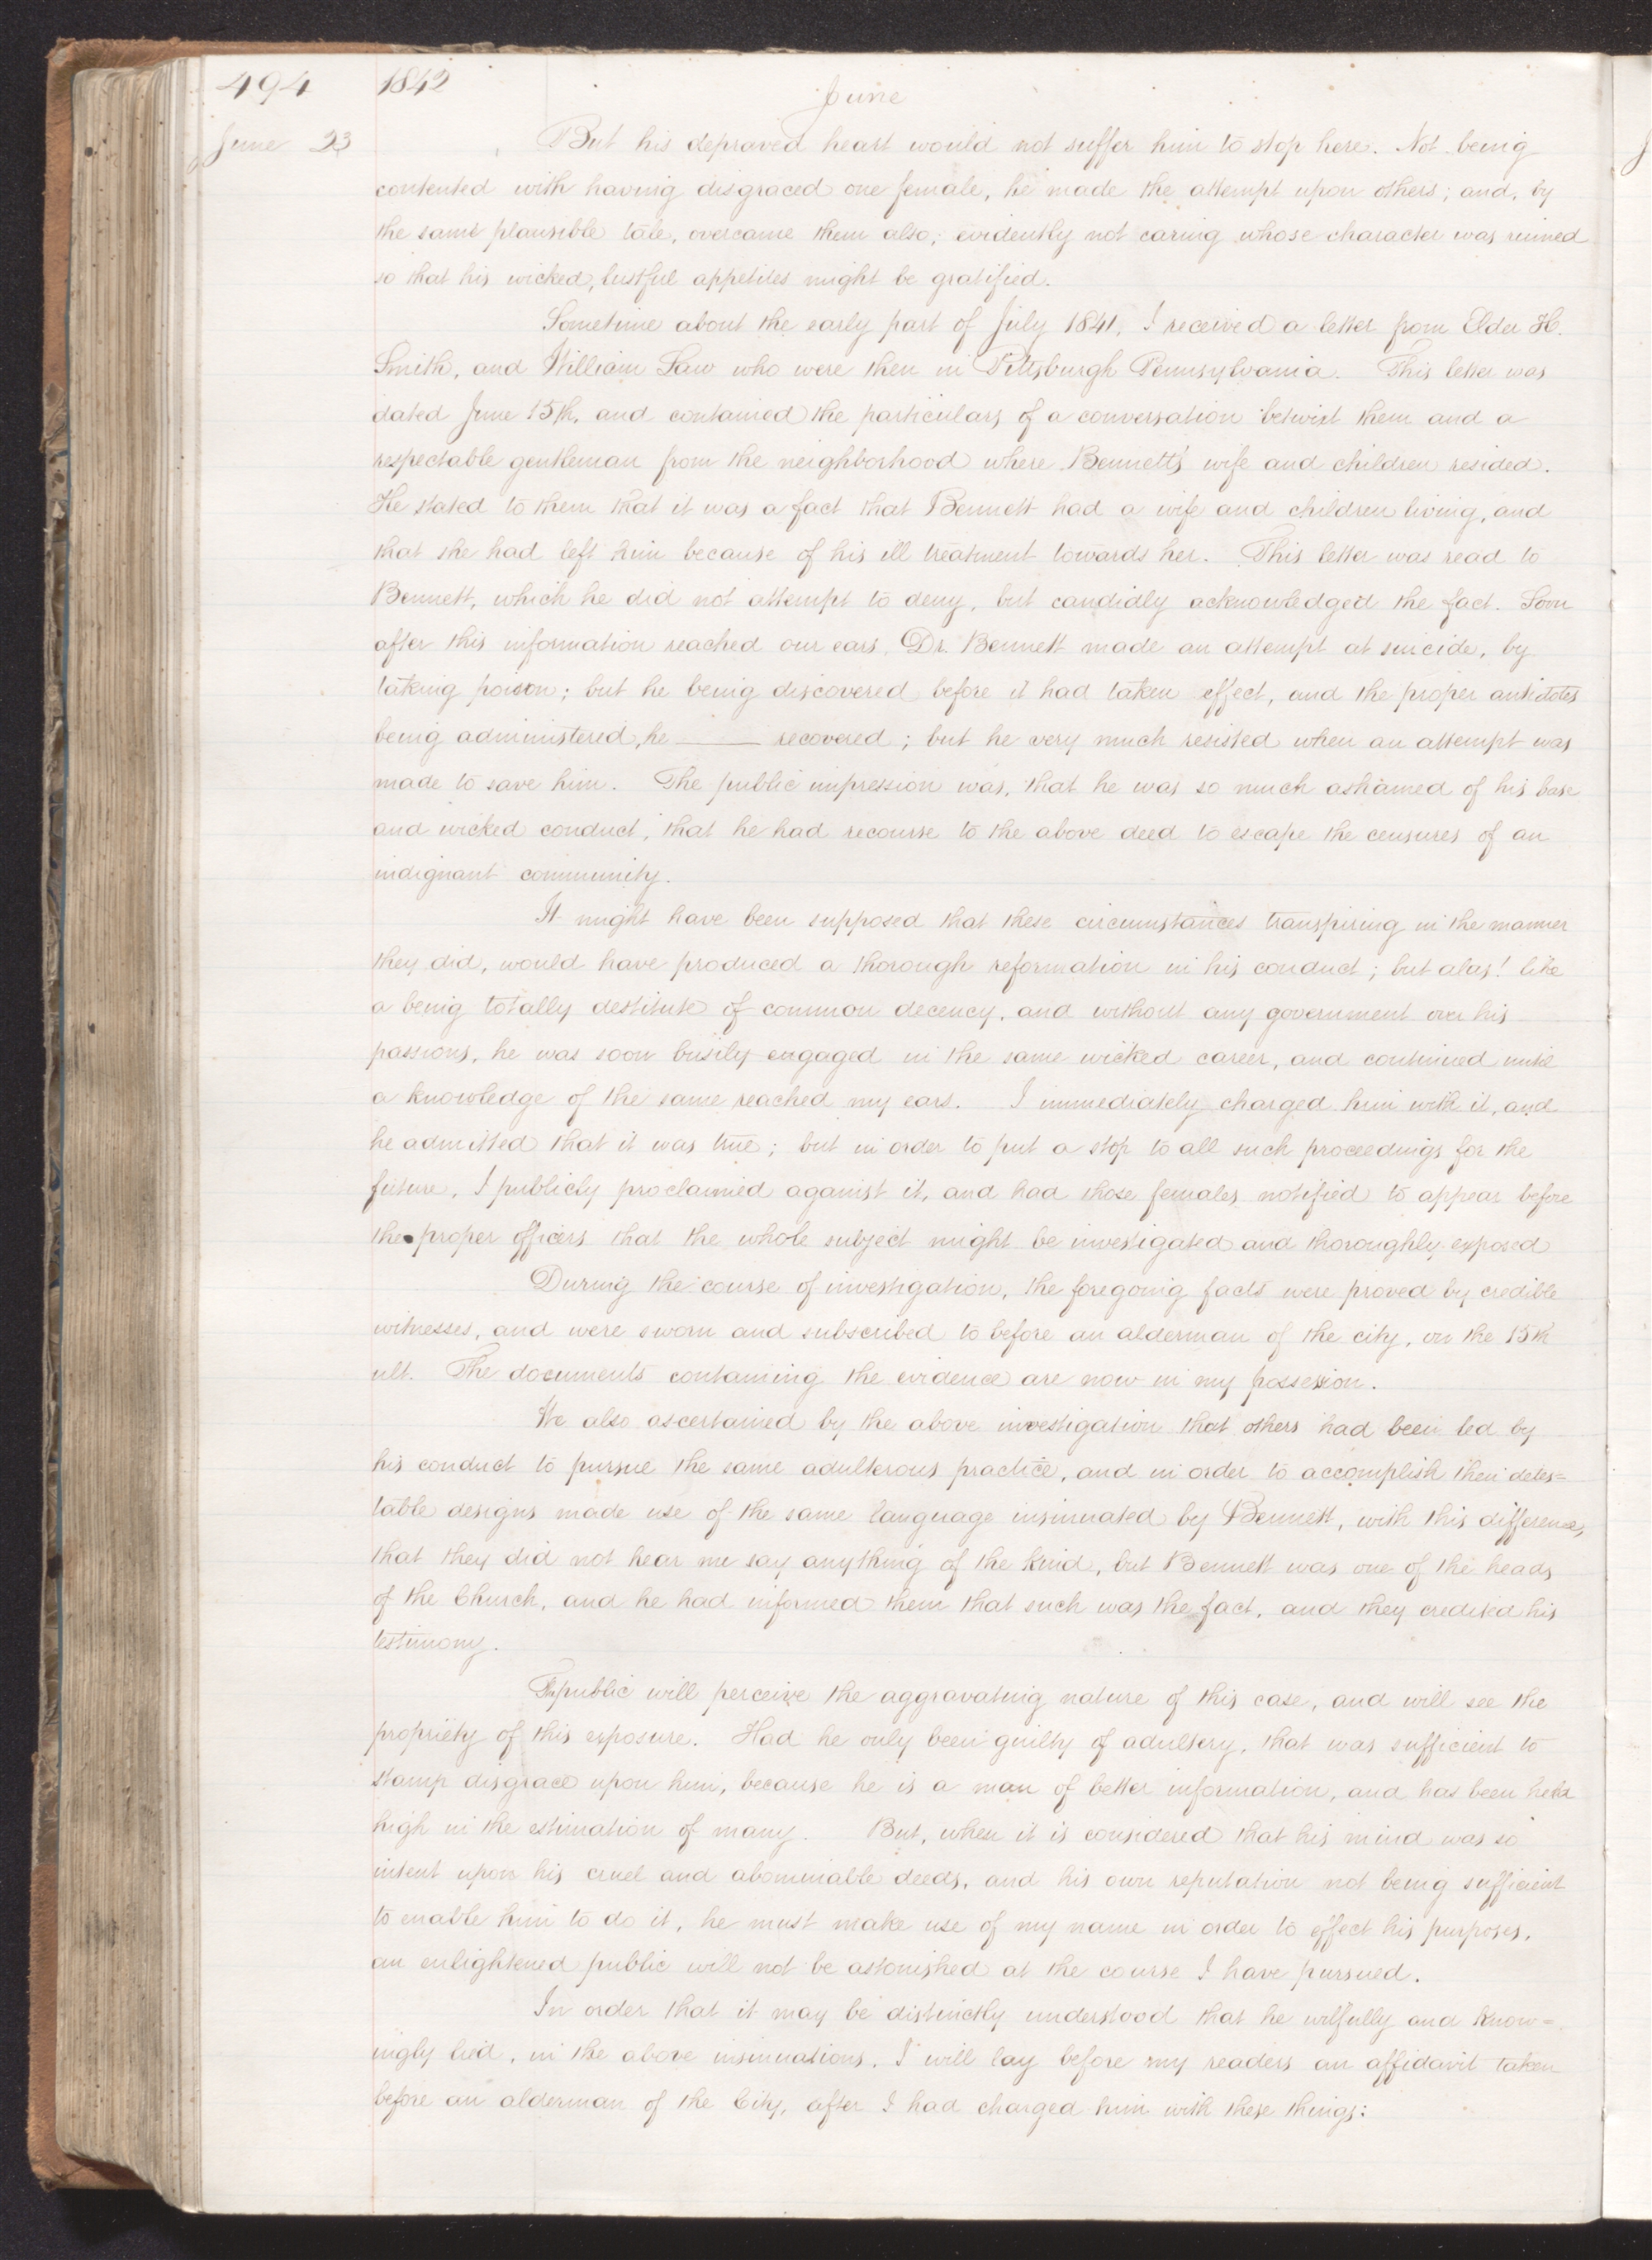 494 1842 June
June 23 But his depraved heart would not suffer him to stop here. Not being
contented with having disgraced one female, he made the attempt upon others; and, by
the same plausible tale, overcame them also; evidently not caring whose character was ruined
so that his wicked, lustful appetites might be gratified.
Sometime about the early part of July 1841, I received a letter from Elder H.
Smith, and William Law who were then in Pittsburgh Pennsylvania. This letter was
dated June 15th, and contained the particulars of a conversation betwixt them and a
respectable gentleman from the neighborhood where Bennett's wife and children resided.
He stated to them that it was a fact that Bennett had a wife and children living, and
that she had left him because of his ill treatment towards her. This letter was read to
Bennett, which he did not attempt to deny, but candidly acknowledged the fact. Soon
after this information reached our ears, Dr. Bennett made an attempt at suicide, by
taking poison; but he being discovered before it had taken effect, and the proper antidotes
being administered, he ——— recovered; but he very much resisted when an attempt was
made to save him. The public impression was, that he was so much ashamed of his base
and wicked conduct, that he had recourse to the above deed to escape the censures of an
indignant community.
It might have been supposed that these circumstances transpiring in the manner
they did, would have produced a thorough reformation in his conduct; but alas! like
a being totally destitute of common decency, and without any government over his
passions, he was soon busily engaged in the same wicked career, and continued until
a knowledge of the same reached my ears. I immediately charged him with it, and
he admitted that it was true; but in order to put a stop to all such proceedings for the
future, I publicly proclaimed against it, and had those females notified to appear before
the proper officers that the whole subject might be investigated and thoroughly exposed
During the course of investigation, the foregoing facts were proved by credible
witnesses, and were sworn and subscribed to before an alderman of the city, on the 15th
ult. The documents containing the evidence are now in my possession.
We also ascertained by the above investigation that others had been led by
his conduct to pursue the same adulterous practice, and in order to accomplish their detes=
table designs made use of the same language insinuated by Bennett, with this difference,
that they did not hear me say anything of the kind, but Bennett was one of the heads
of the Church, and he had informed them that such was the fact, and they credited his
testimony.
The public will perceive the aggravating nature of this case, and will see the
propriety of this exposure. Had he only been guilty of adultery, that was sufficient to
stamp disgrace upon him, because he is a man of better information, and has been held
high in the estimation of many. But, when it is considered that his mind was so
intent upon his cruel and abominable deeds, and his own reputation not being sufficient
to enable him to do it, he must make use of my name in order to effect his purposes,
an enlightened public will not be astonished at the course I have pursued.
In order that it may be distinctly understood that he wilfully and know=
ingly lied, in the above insinuations, I will lay before my readers an affidavit taken
before an alderman of the City, after I had charged him with these things: